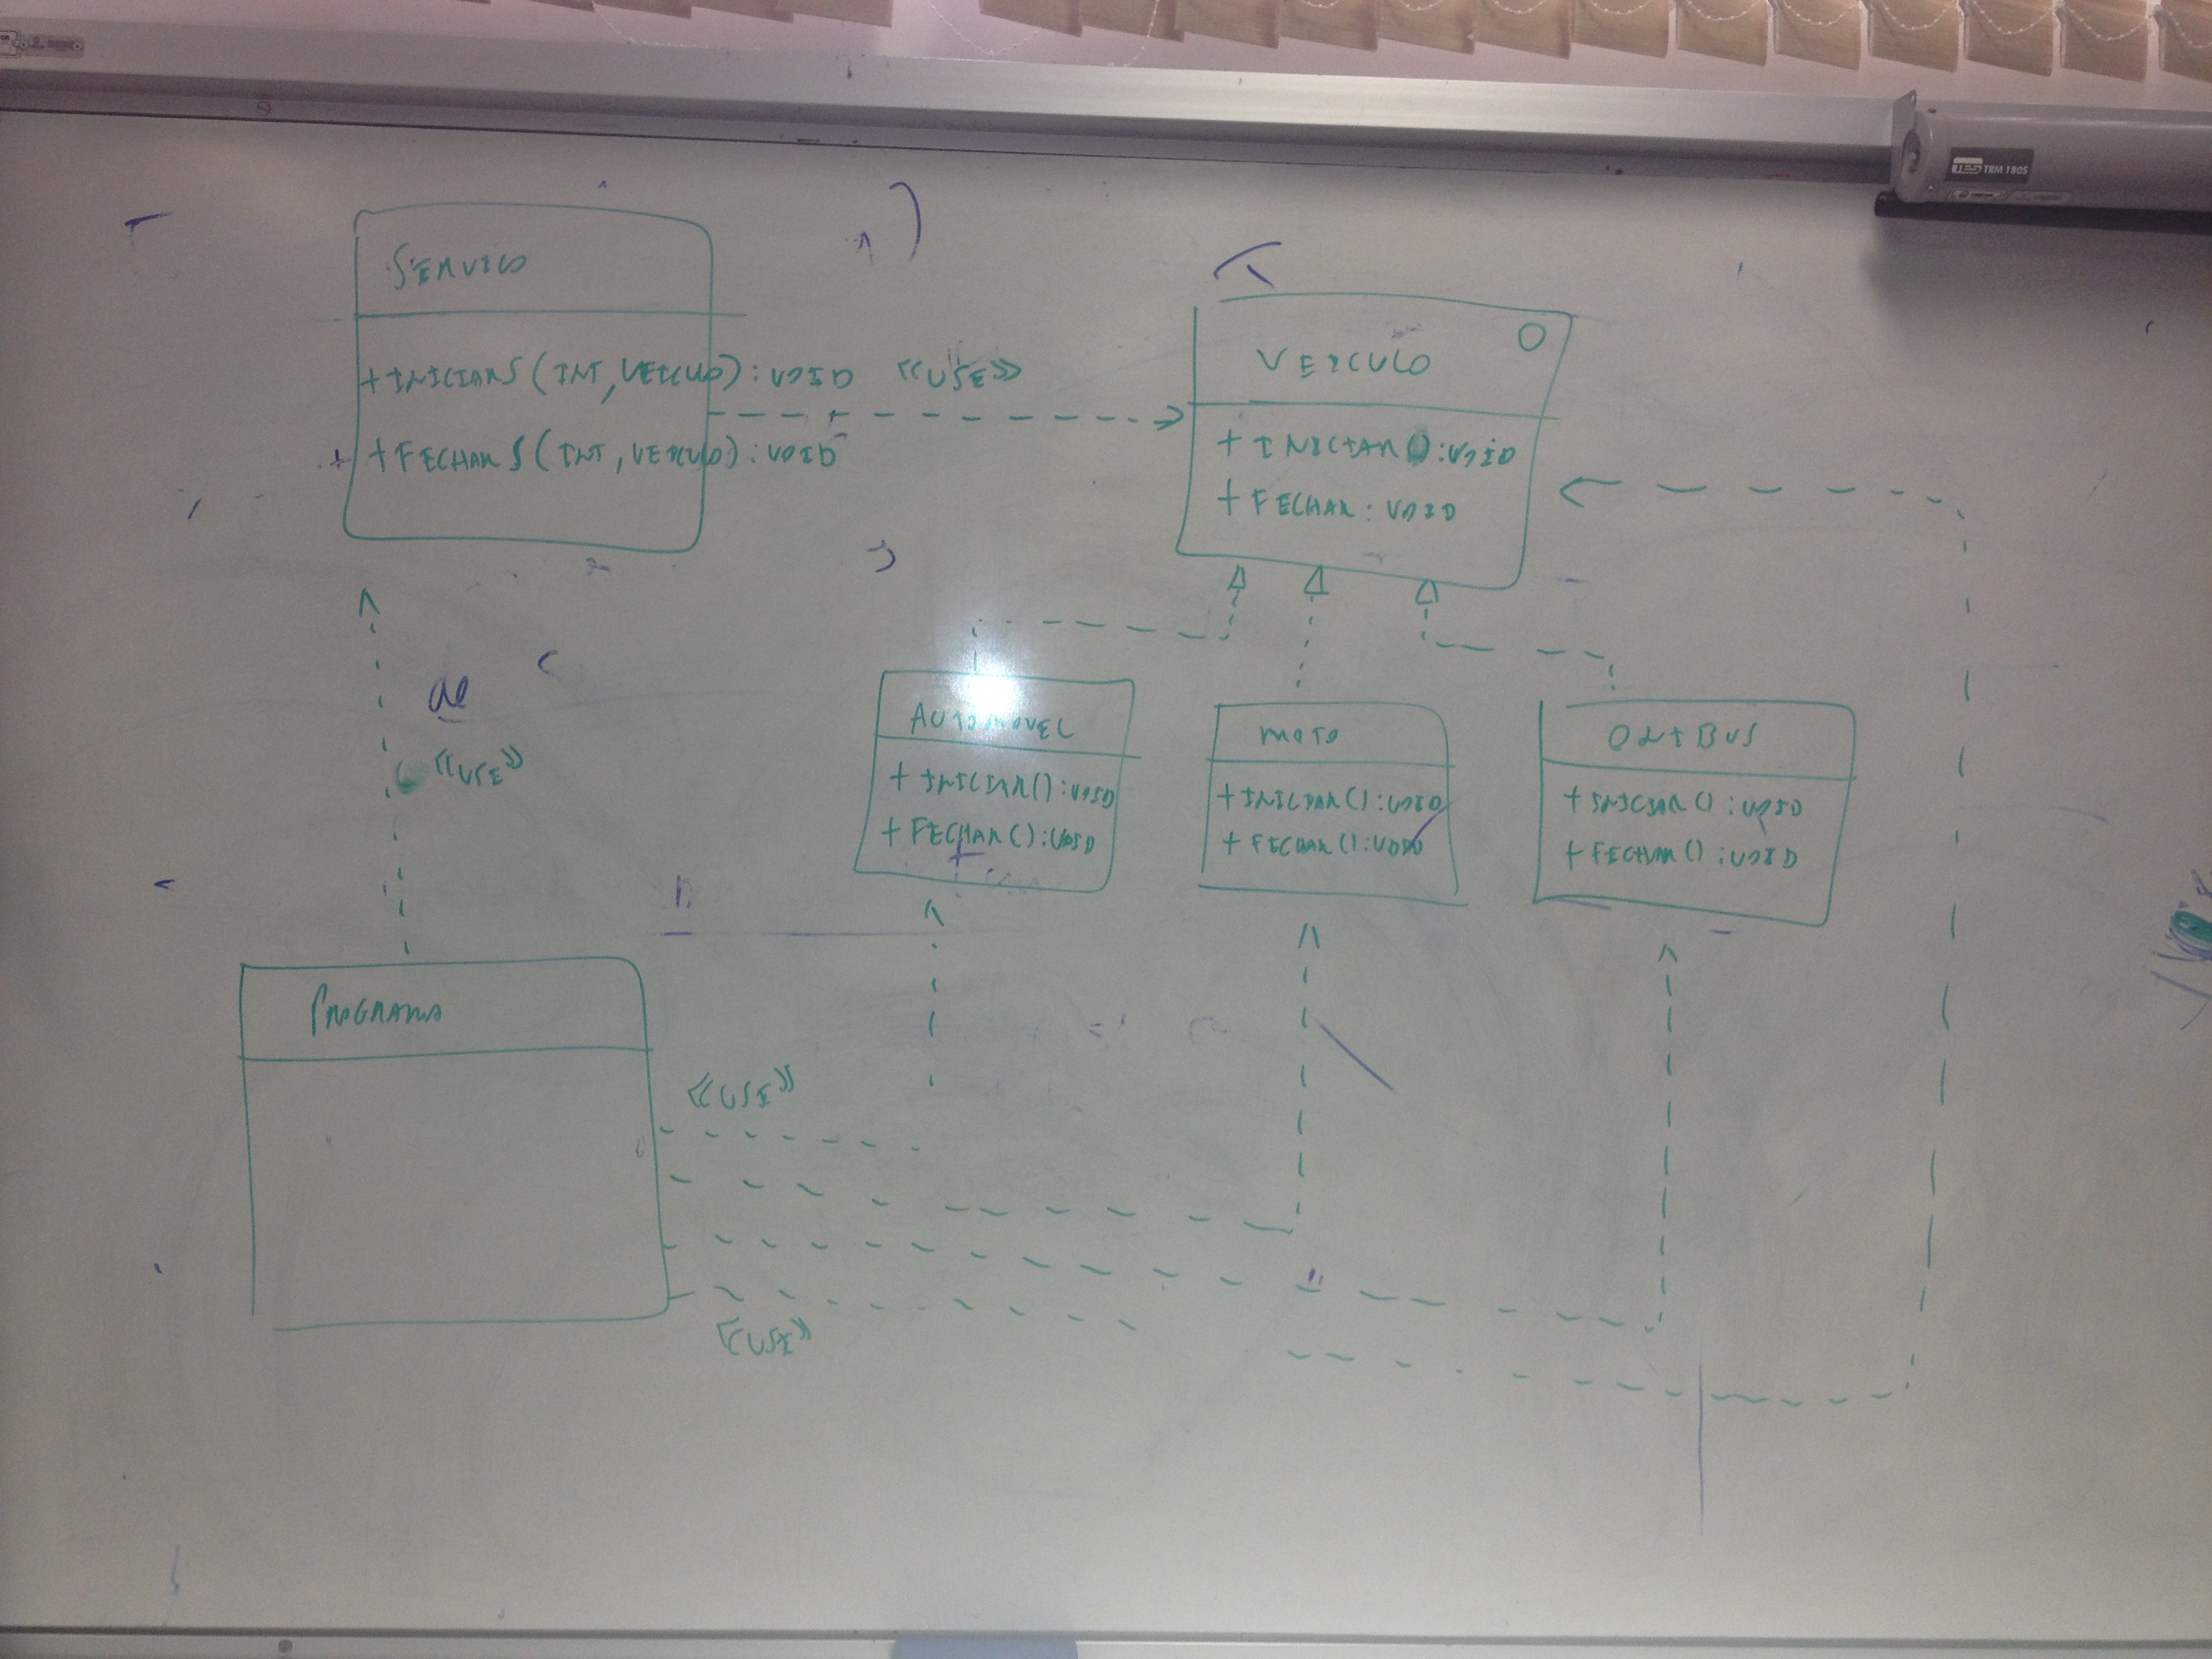 TES TRM 180S
SERVICO
+ INICIARS (INT, VEICULO) : VOID
+ FECHARS (INT, VEICULO) : VOID
<<USE>>
VEICULO
+ INICIAR () : VOID
+ FECHAR : VOID
de
<<USE>>
AUTOMOVEL
+ INICIAR () : VOID
+ FECHAR () : VOID
MOTO
+ INICIAR () : VOID
+ FECHAR () : VOID
ONIBUS
+ INICIAR () : VOID
+ FECHAR () : VOID
PROGRAMA
<<USE>>
<<USE>>